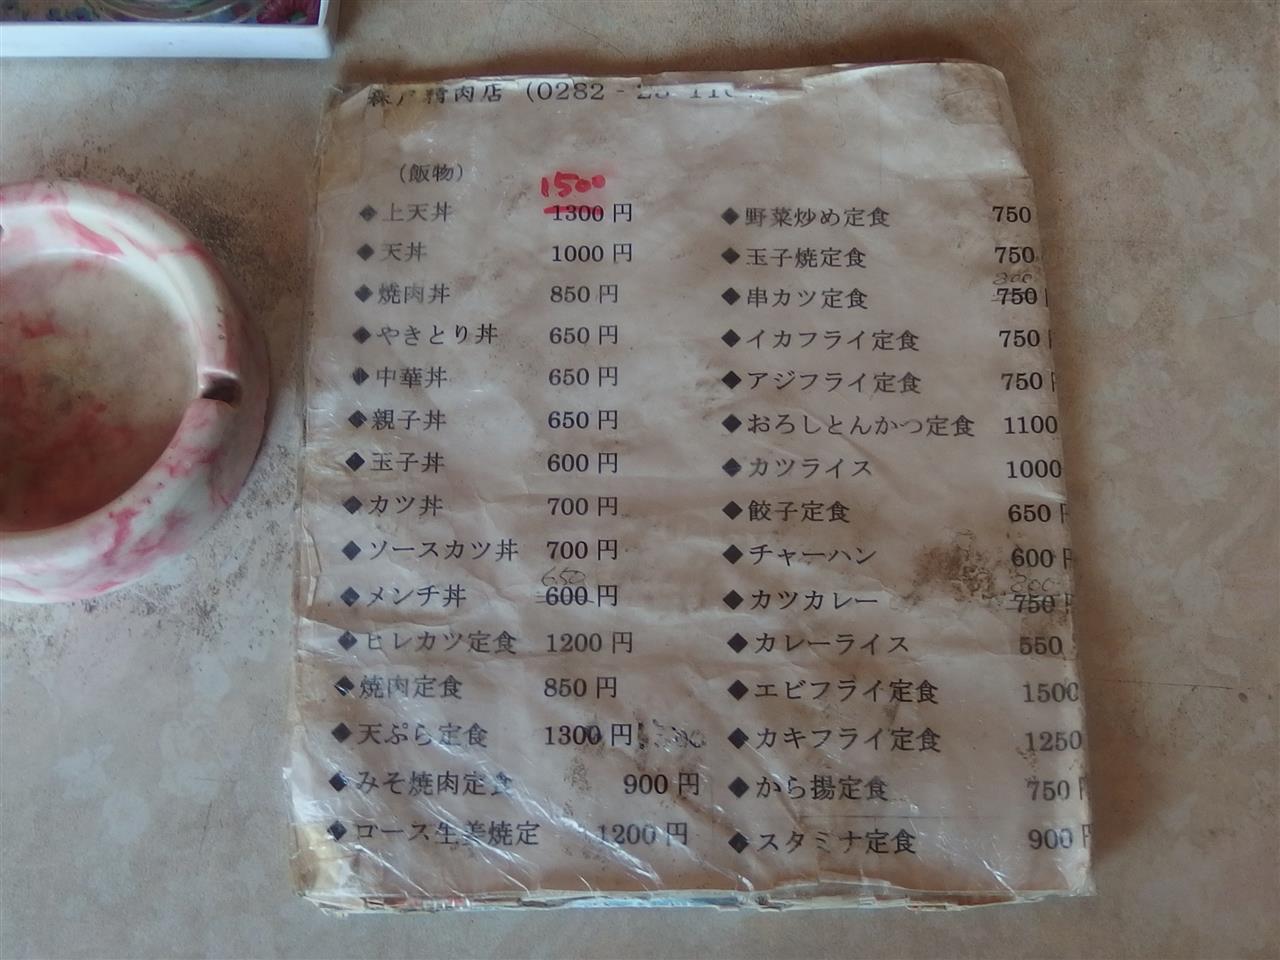 精肉店 (0282 -
（飯物）
1500
◆上天丼 1300 円
◆天丼 1000 円
◆焼肉丼 850 円
◆やきとり丼 650 円
◆中華丼 650 円
◆親子丼 650 円
◆玉子丼 600 円
◆カツ丼 700 円
◆ソースカツ丼 700 円
650
◆メンチ丼 600 円
◆ヒレカツ定食 1200 円
◆焼肉定食 850 円
◆天ぷら定食 1300 円
◆みそ焼肉定食 900 円
◆ロース生姜焼定 1200 円
◆野菜炒め定食 750
◆玉子焼定食 750
800
◆串カツ定食 750
◆イカフライ定食 750
◆アジフライ定食 750
◆おろしとんかつ定食 1100
◆カツライス 1000
◆餃子定食 650
◆チャーハン 600
800
◆カツカレー 750
◆カレーライス 550
◆エビフライ定食 1500
◆カキフライ定食 1250
◆から揚定食 750
◆スタミナ定食 900